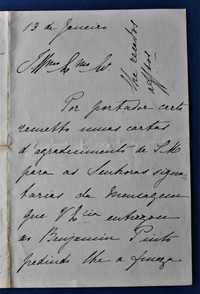 13 de Janeiro
Illmo Exmo Sr
Por portador certo
remetto umas cartas
d'agradecimento de S.M.
para as Senhoras signa-
tarias da Mensagem
que V. Excia entregou
ao Benjamim Pinto
pedindo lhe a fineza